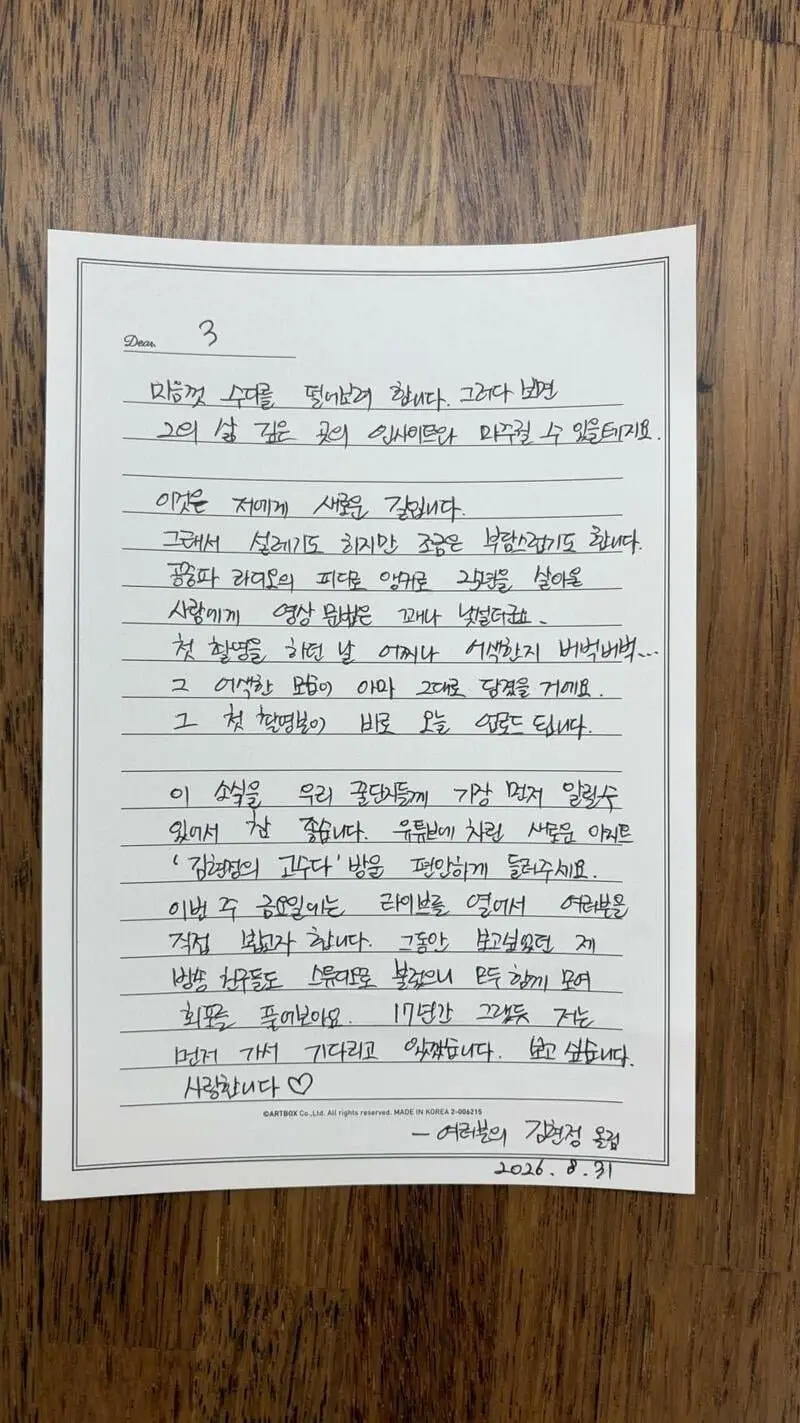 Dear. 3
마음껏 수다를 떨어보려 합니다. 그러다 보면
그의 삶 깊은 곳의 인사이트와 마주칠 수 있을테지요.
이것은 저에게 새로운 길입니다.
그래서 설레기도 하지만 조금은 부담스럽기도 합니다.
공중파 라디오의 피디로 앵커로 25년을 살아온
사람에게 영상 문법은 꽤나 낯설더군요.
첫 촬영을 하던 날 어찌나 어색한지 버벅버벅...
그 어색한 모습이 아마 그대로 담겼을 거에요.
그 첫 촬영본이 바로 오늘 업로드 됩니다.
이 소식을 우리 꿀단지들께 가장 먼저 알릴수
있어서 참 좋습니다. 유튜브에 차린 새로운 아지트
'김현정의 고수다' 방을 편안하게 들러주세요.
이번 주 금요일에는 라이브를 열어서 여러분을
직접 뵙고자 합니다. 그동안 보고싶었던 제
방송 친구들도 스튜디오로 불렀으니 모두 함께 모여
회포를 풀어보아요. 17년간 그랬듯 저는
먼저 가서 기다리고 있겠습니다. 보고 싶습니다.
사랑합니다 ♡
©ARTBOX Co.,Ltd. All rights reserved. MADE IN KOREA 2-006215
- 여러분의 김현정 올림
2026. 8. 31